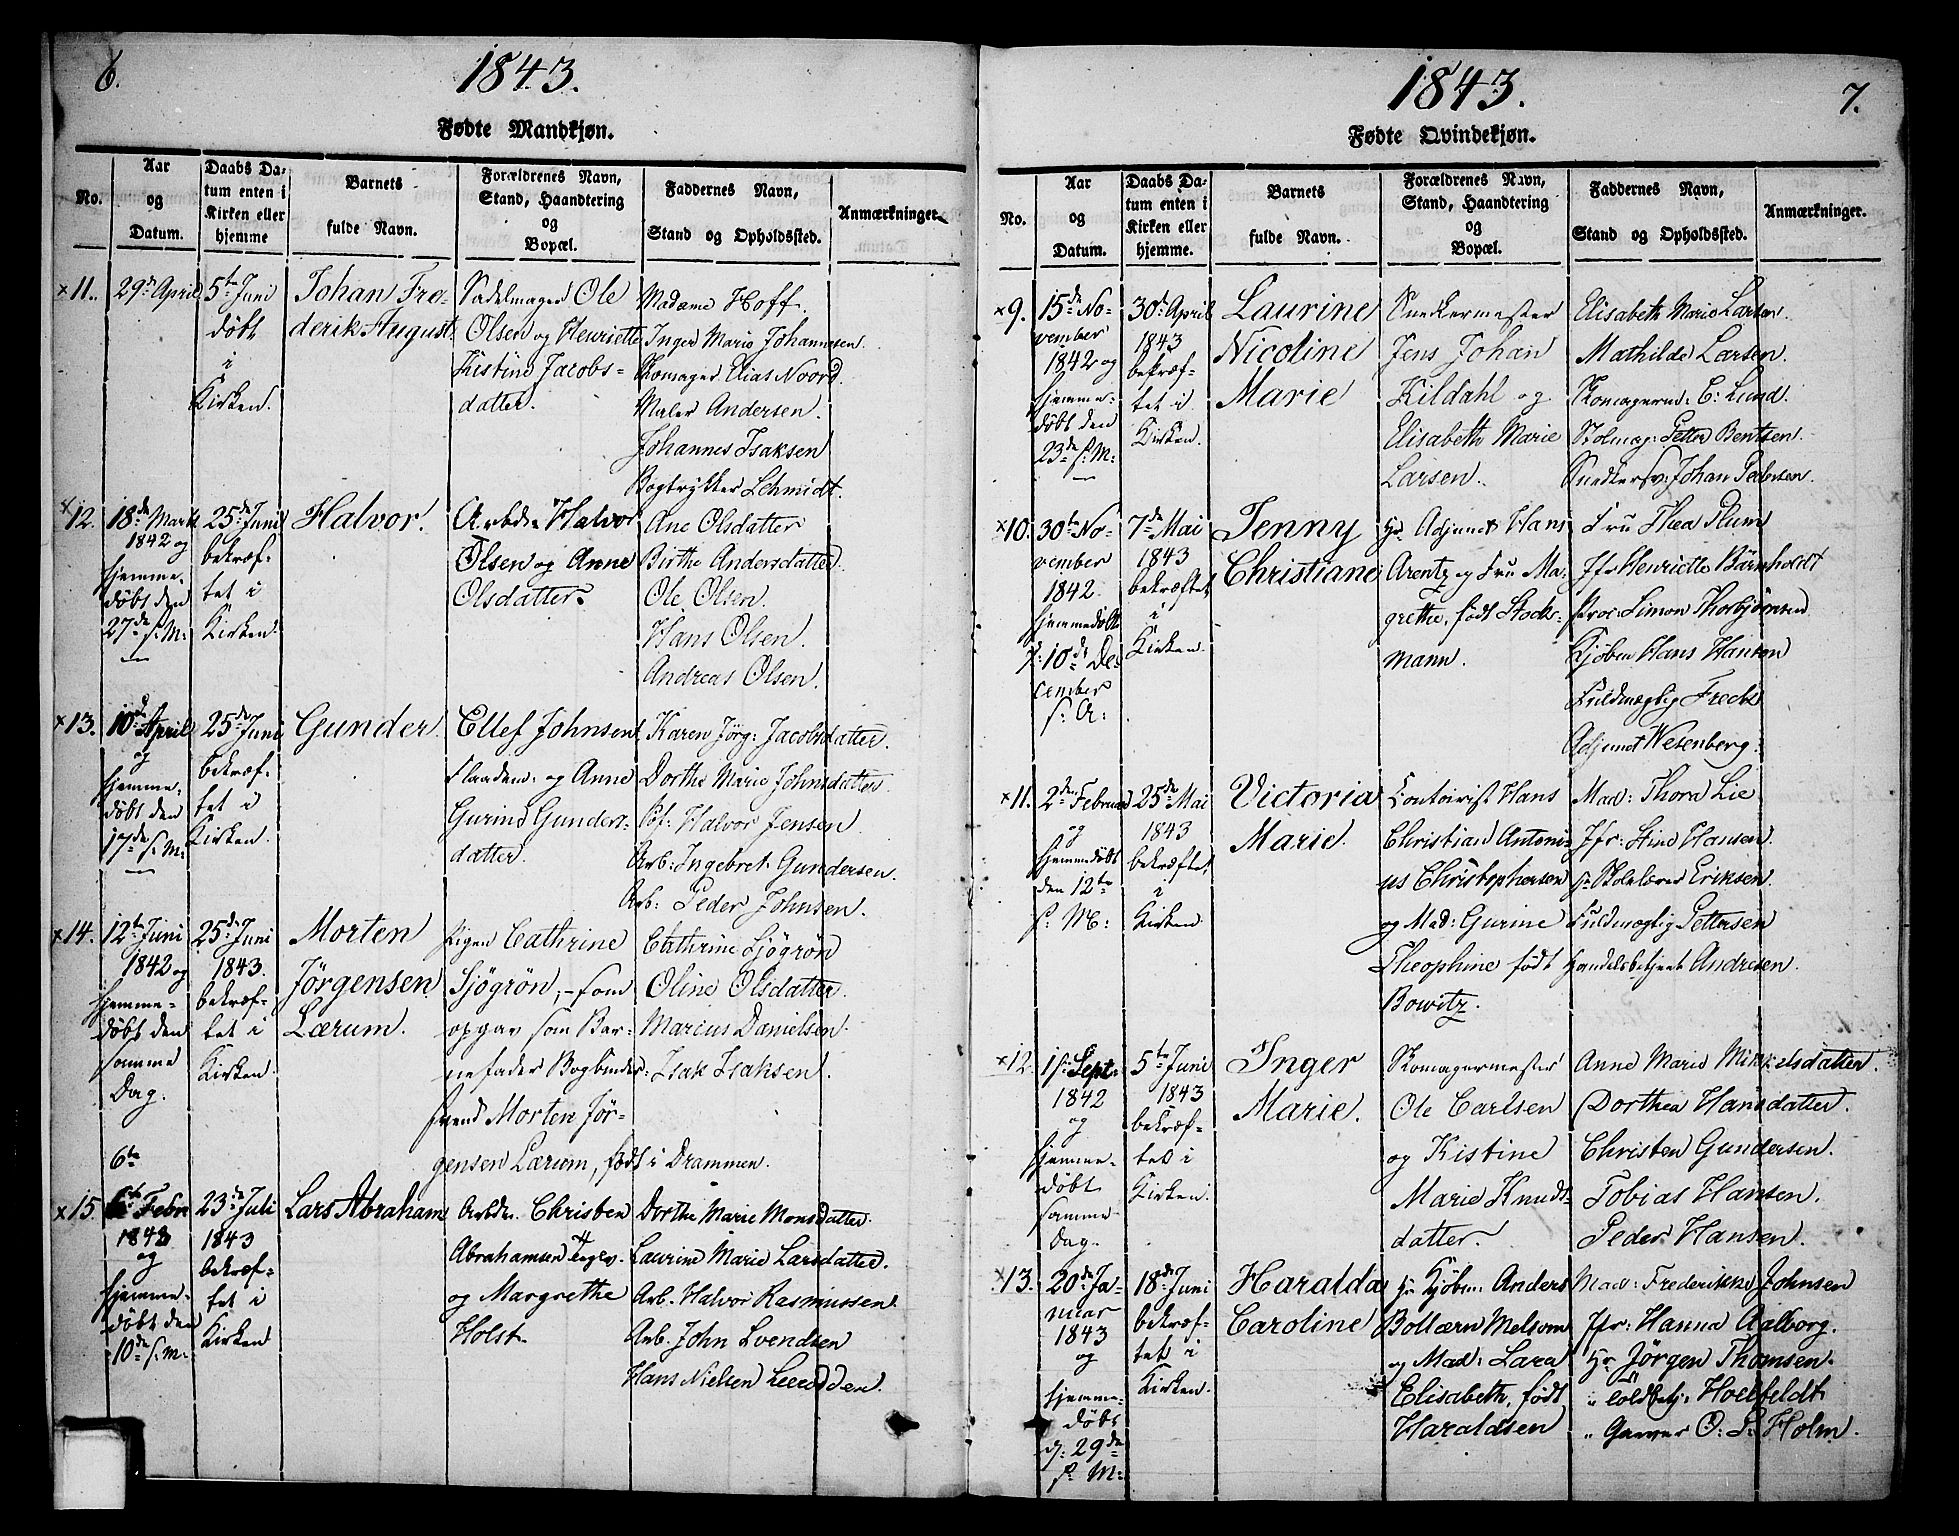 6.
1843.
Fødte Mandkjøn.
No.
Aar
og
Datum.
Daabs Da-
tum enten i
Kirken eller
hjemme
Barnets
fulde Navn.
Forældrenes Navn,
Stand, Haandtering
og
Bopæl.
Faddernes Navn,
Stand og Opholdssted.
Anmærkninger.
×11.
29de April
5te Juni
døbt
i
Kirken.
Johan Fre-
derik August
Sadelmager Ole
Olsen og Henriette
Kistine Jacobs-
datter.
Madame Hoff.
Inger Marie Johannesen.
Skomager Elias Noord.
Maler Andersen.
Johannes Isaksen
Bogtrykker Schmidt.
×12.
18de Marts
1842 og
hjemme-
døbt den
27de s: M:
25de Juni
bekræf-
tet i
Kirken.
Halvor.
Arbdr Halvor
Olsen og Anne
Olsdatter.
Ane Olsdatter
Birthe Andersdatter.
Ole Olsen.
Hans Olsen.
Andreas Olsen.
×13.
10de April
og
hjemme-
døbt den
17de s: M:
25de Juni
bekræf-
tet i
Kirken.
Gunder.
Ellef Johnsen
og Anne
Gurine Gunders-
datter.
Karen Jørg: Jacobsdatter.
Dorthe Marie Johnsdatter
Halvor Jensen
Arb: Ingebret Gundersen.
Arb: Peder Johnsen.
×14.
12te Juni
1842 og
hjemme-
døbt den
samme
Dag.
25de Juni
1843.
bekræf-
tet i
Kirken.
Morten
Jørgensen
Lærum.
Pigen Cathrine
Sjögrön, - som
opgav som Bar-
nefader Bogbinder-
svend Morten Jør-
gensen Lærum, født i Drammen.
Cathrine Sjögrön
Oline Olsdatter.
Marcus Danielsen.
Isak Isaksen.
6te
×15.
6te Febr
1843
og
hjemme-
døbt den
10de s: M:
23de Juli
1843
bekræf-
tet i
Kirken
Lars Abraham
Arbdr. Christen
Abrahamsen
og Margrethe
Holst.
Dorthe Marie Monsdatter.
Laurine Marie Larsdatter.
Arb. Halvor Rasmussen.
Arb. John Svendsen
Hans Nielsen
1843.
7.
Fødte Qvindekjøn.
No.
Aar
og
Datum.
Daabs Da-
tum enten i
Kirken eller
hjemme.
Barnets
fulde Navn.
Forældrenes Navn,
Stand, Haandtering
og
Bopæl.
Faddernes Navn,
Stand og Opholdssted.
Anmærkninger.
×9.
15de No-
vember
1842 og
hjemme-
døbt den
23de s: M:
30de April
1843
bekræf-
tet i
Kirken.
Laurine
Nicoline
Marie
Snedkermester
Jens Johan
Kildahl og
Elisabeth Marie
Larsen.
Elisabeth Marie Larsen
Mathilde Larsen.
E: Lund.
Stolmag: Petter Bentsen.
Snedkersv: Johan Pedersen.
×10.
30te No-
vember
1842.
hjemmedøbt
d: 10de De-
cember
s: A:
7de Mai
1843
bekræftet
i
Kirken.
Jenny
Christiane
Hr Adjunct Hans
Arentz og Fru Ma-
grethe, født Stock-
mann.
Fru Thea Plum
Jfr Henriette Bärnholdt
Simon Thorbjørnsen
Kjøbm Hans Hansen
Fuldmægtig Frecks
Adjunct Wesenberg.
×11.
2den Februar
og
hjemmedøbt
den 12te
s: M:
25de Mai
1843
bekræftet
i
Kirken
Victoria
Marie.
Contoirist Hans
Christian Antoni-
us Christophersen
og Mad: Gurine
Theophine født
Bowitz.
Mad: Thora Lie
Jfr: Stine Hansen.
Hr Skolelærer Eriksen.
Fuldmægtig Pettersen
Handelsbetjent Andresen.
×12.
1ste Sept:
1842
og
hjemme-
døbt
samme
Dag.
5te Juni
1843
bekræf-
tet i
Kirken.
Inger
Marie.
Skomagermester
Ole Carlsen
og Kistine
Marie Knuds-
datter.
Anne Marie Mikkelsdatter.
Dorthea Hansdatter.
Christen Gundersen.
Tobias Hansen.
Peder Hansen.
×13.
20de Ja-
nuar
1843
og
hjemme-
døbt
d: 29de
s: M:
18de Juni
bekræf-
tet i
Kirken.
Haralda
Caroline
Hr Kjøbm: Anders
Bollærn Melsom
og Mad: Lara
Elisabeth, født
Haraldsen
Mad: Frederikke Johnsen
Jfr: Hanna Aalborg.
Hr Jörgen Thomsen.
" Toldbetj: Hoelfeldt
" Garver O: P: Holm.